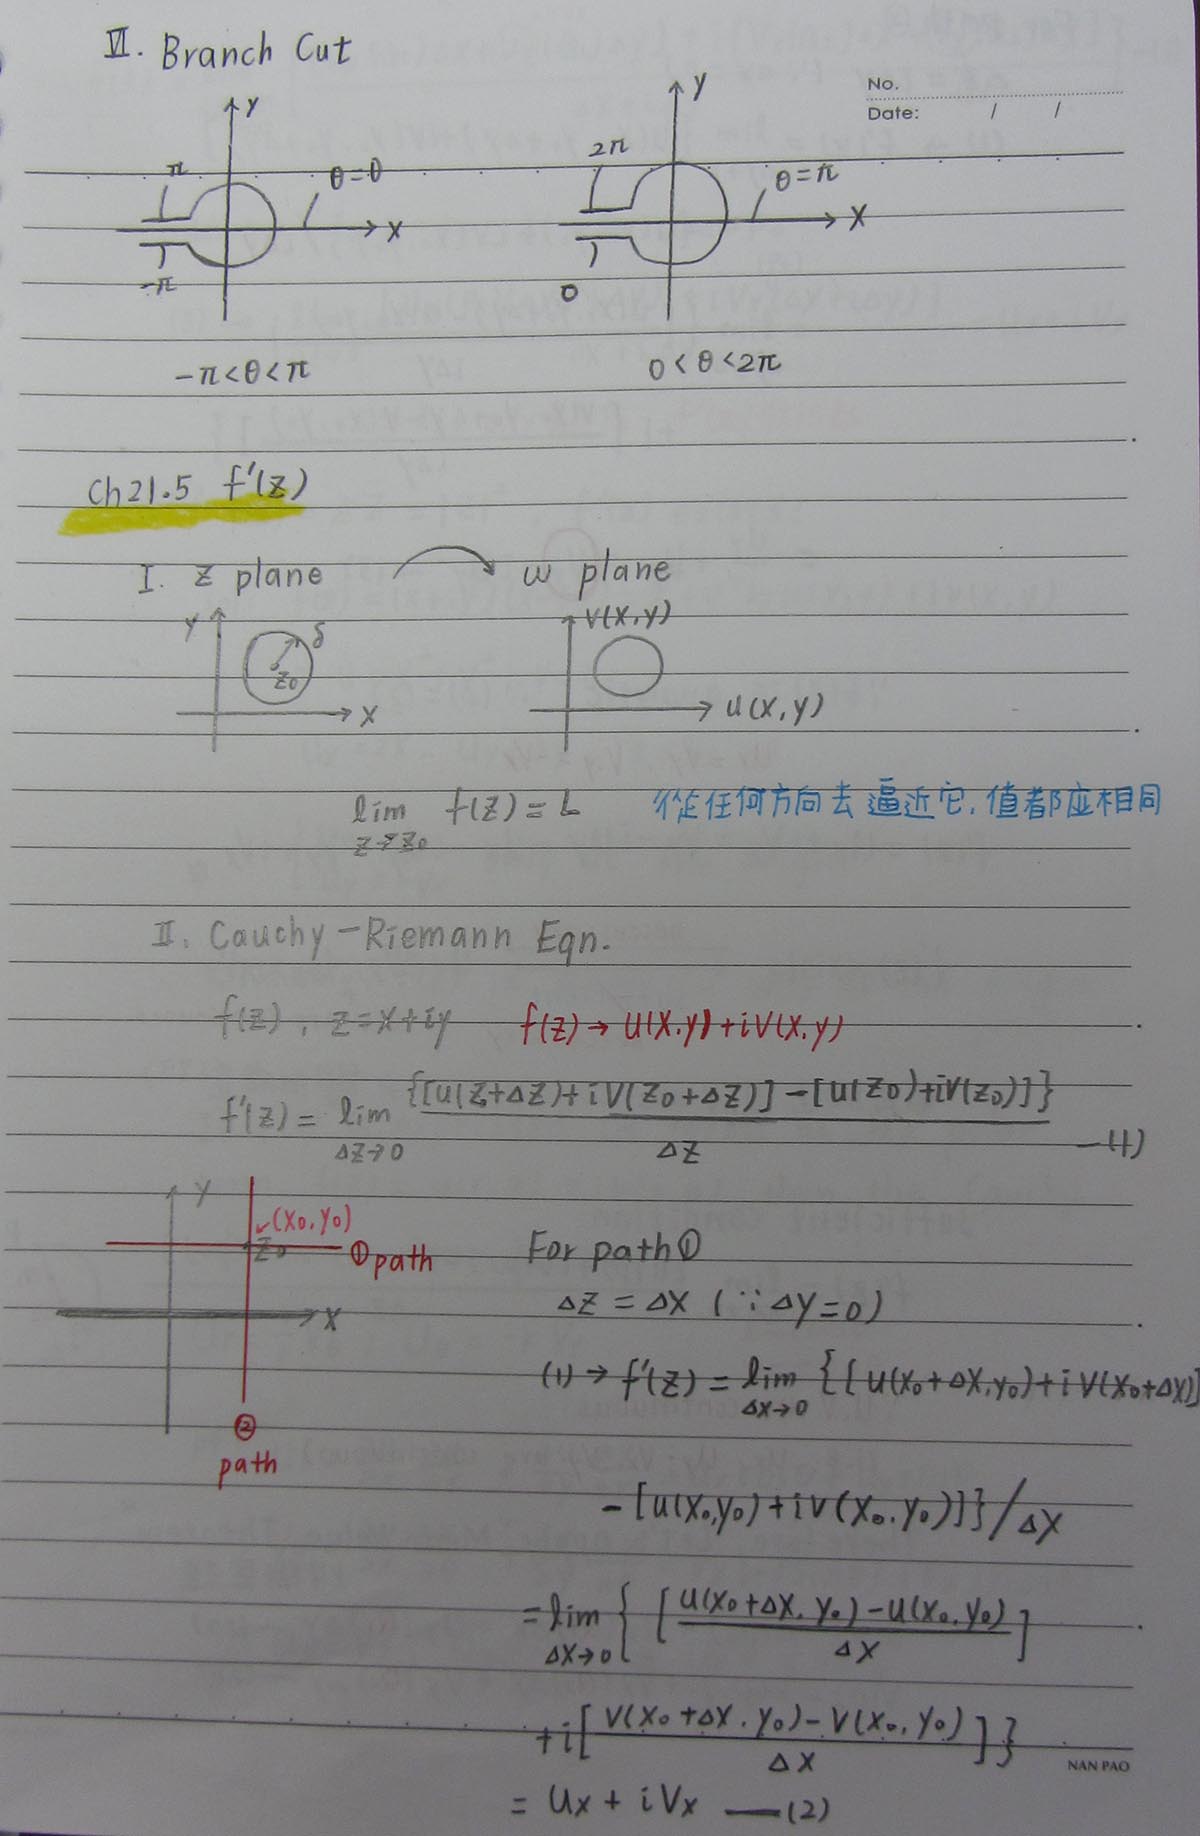 VI. Branch Cut
No.
Date: / /
Y
π
θ=0
X
-π
-π<θ<π
Y
2π
θ=π
X
0
0<θ<2π
Ch21.5 f'(z)
I. z plane
w plane
Y
δ
z0
X
V(X,y)
u(X,y)
lim f(z) = L
z→z0
從任何方向去逼近它,值都应相同
II. Cauchy-Riemann Eqn.
f(z), z=x+iy f(z)→u(x.y)+iV(x,y)
f'(z) = lim {[u(z+Δz)+iV(z0+Δz)]-[u(z0)+iV(z0)]}
Δz→0 Δz —(1)
Y
(x0,y0)
z0
①path
X
②
path
For path①
Δz = Δx (∵Δy=0)
(1)→f'(z) = lim {[u(x0+Δx,y0)+iV(x0+Δx)]
Δx→0
-[u(x0,y0)+iV(x0.y0)]}/Δx
=lim { [u(x0+Δx.y0)-u(x0.y0)]
Δx→0 Δx
+i[V(x0+Δx.y0)-V(x0,y0)]}
Δx
= Ux + iVx —(2)
NAN PAO